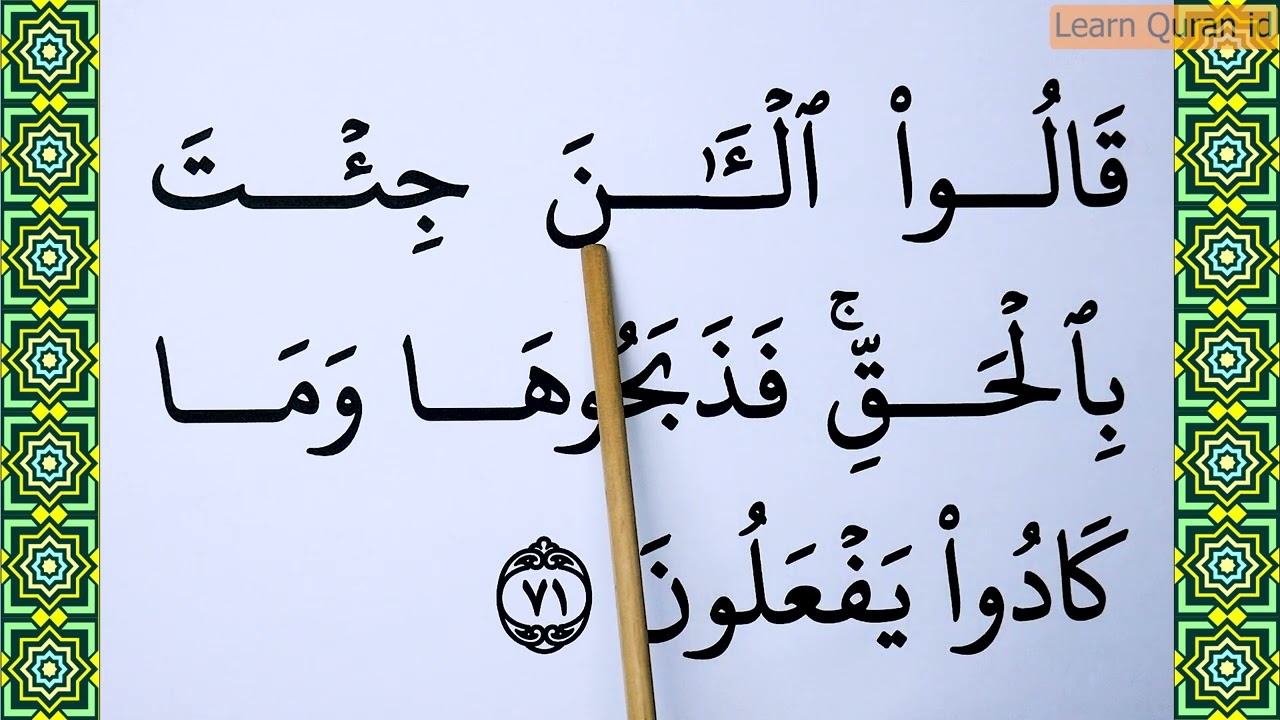 Learn Quran id
قَالُوا۟ ٱلْـَٰٔنَ جِئْتَ
بِٱلْحَقِّ ۚ فَذَبَحُوهَا وَمَا
كَادُوا۟ يَفْعَلُونَ ٧١